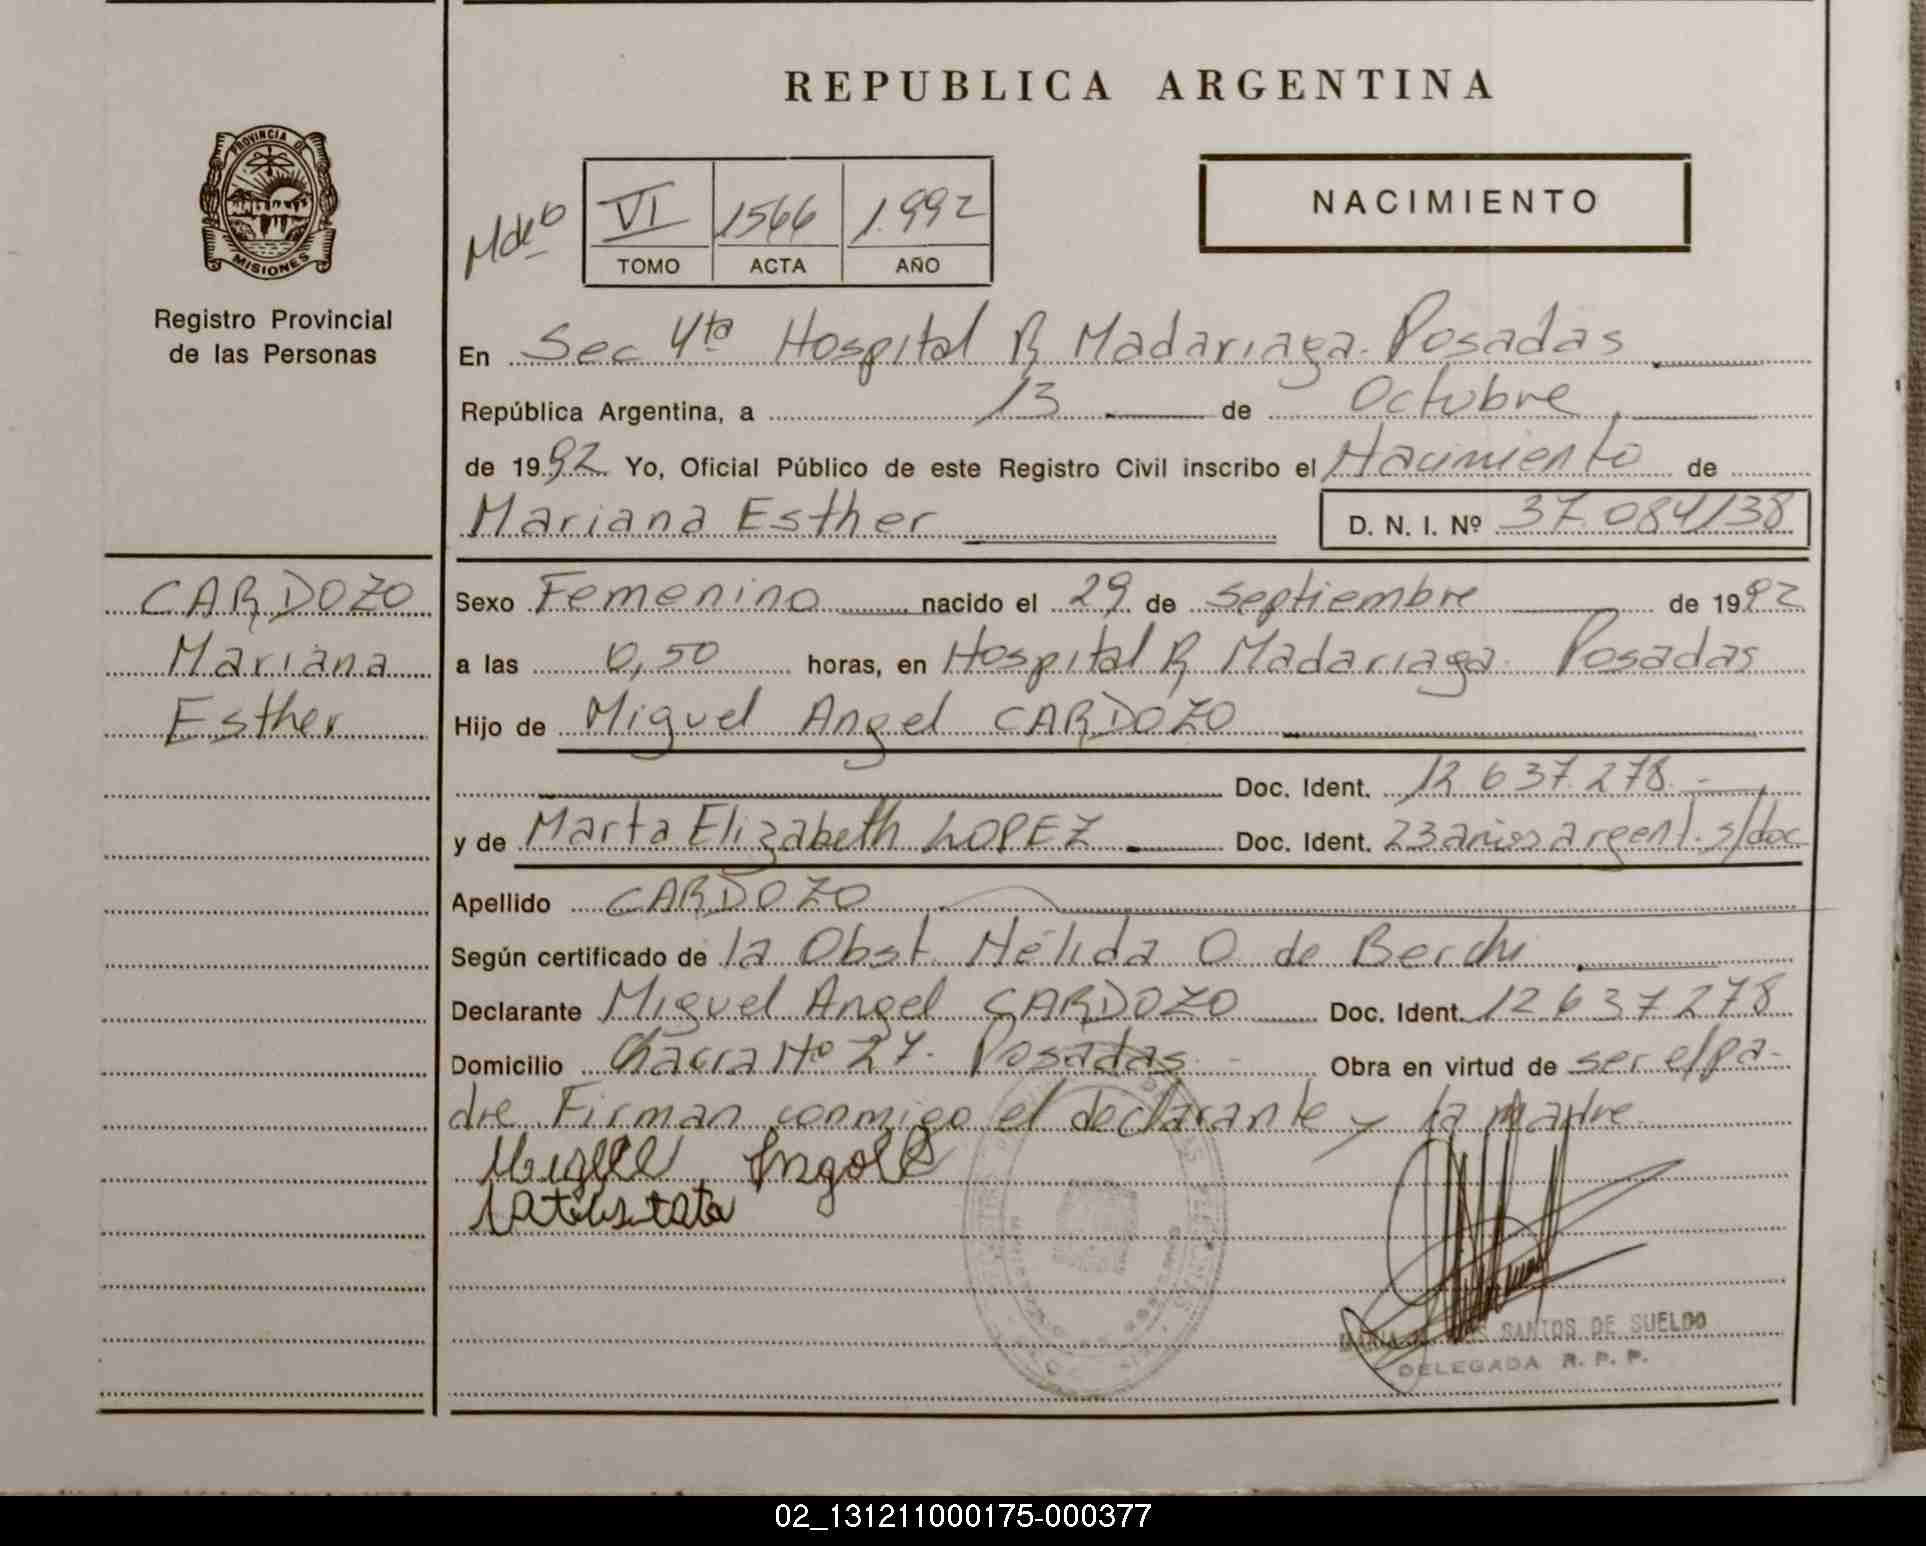 REPUBLICA ARGENTINA
PROVINCIA DE
MISIONES
Registro Provincial
de las Personas
NACIMIENTO
VI 1566 1.992
TOMO ACTA AÑO
En Sec 4ta Hospital R Madariaga. Posadas
República Argentina, a 13 de Octubre
de 1992 Yo, Oficial Público de este Registro Civil inscribo el Nacimiento de
Mariana Esther D. N. I. Nº 37.084138
CARDOZO
Mariana
Esther
Sexo Femenino nacido el 29 de septiembre de 1992
a las 0,50 horas, en Hospital R Madariaga Posadas
Hijo de Miguel Angel CARDOZO
Doc. Ident. 12.637.278.-
y de Marta Elizabeth LOPEZ.- Doc. Ident. 23 años argent. s/doc
Apellido CARDOZO
Según certificado de la Obst. Nélida O de Berchi
Declarante Miguel Angel CARDOZO Doc. Ident. 12 637 278
Domicilio Chacra Nº 27. Posadas.- Obra en virtud de ser el pa-
dre. Firman conmigo el declarante y la madre.
SANTOS DE SUELDO
DELEGADA R. P. P.
02_131211000175-000377